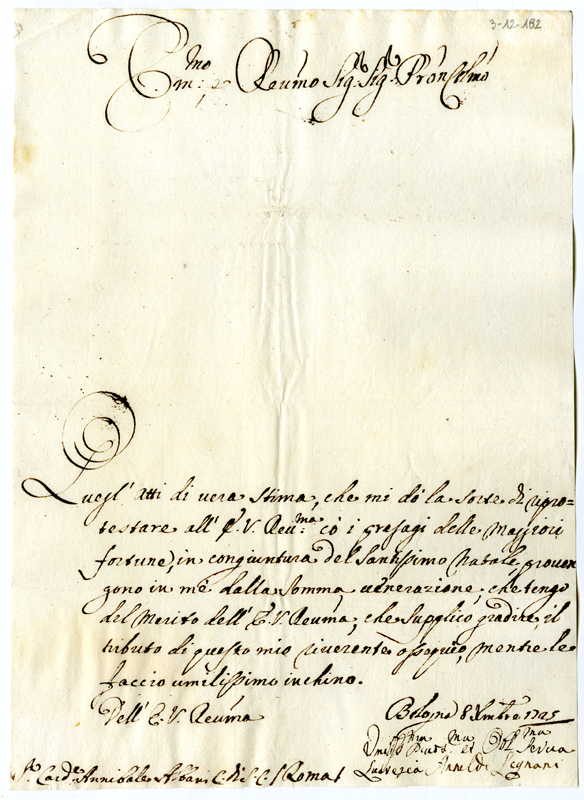 3-12-182
Em:mo e Reumo Sig.r Sig.r Prõn Colmo
Quegl' atti di vera stima, che mi dò la sorte di ripro=
testare all' E.V. Reu:ma cò i presagi delle Maggiori
fortune, in congiuntura del Santissimo Natale, proven
gono in mè dalla Somma venerazione, che tengo
del Merito dell' E.V. Reuma, che supplico gradire, il
tributo di questo mio riverente ossequio, mentre le
faccio umilissimo inchino.
Dell' E.V. Reuma
Bologna 8 Xmbre 1725
Diuot:ma et Obl:ma Serua
Lucrezia Legnani
Sr Cardle Annibale Albani Roma